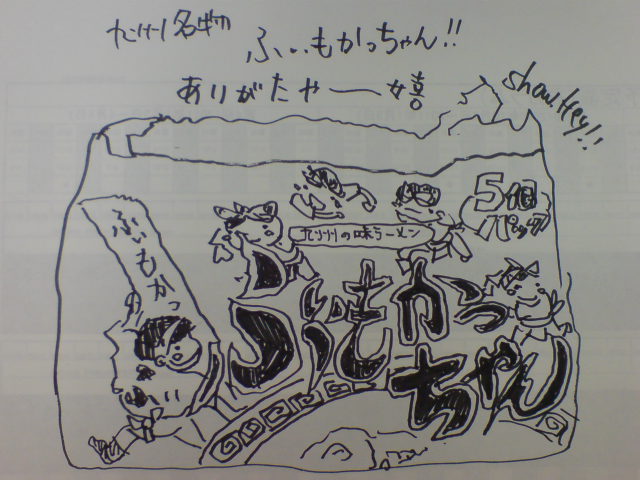 九州名物
ふぃもかっちゃん!!
ありがたやー嬉
Show.Hey!!
5個
パック
九州の味ラーメン
ふぃもかっ
ちゃん
ふぃもかっ
の